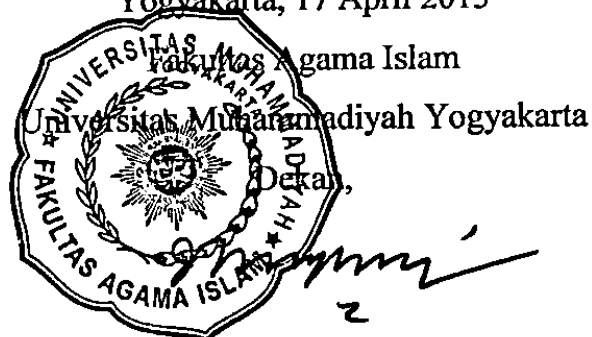 Yogyakarta, 17 April 2013
Fakultas Agama Islam
Universitas Muhammadiyah Yogyakarta
Dekan,
UNIVERSITAS MUHAMMADIYAH
YOGYAKARTA
FAKULTAS AGAMA ISLAM